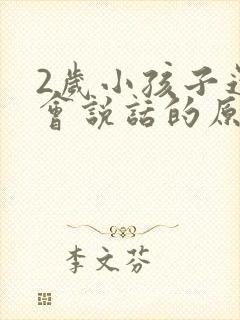 2歲小孩子
會說話的原
李文芬